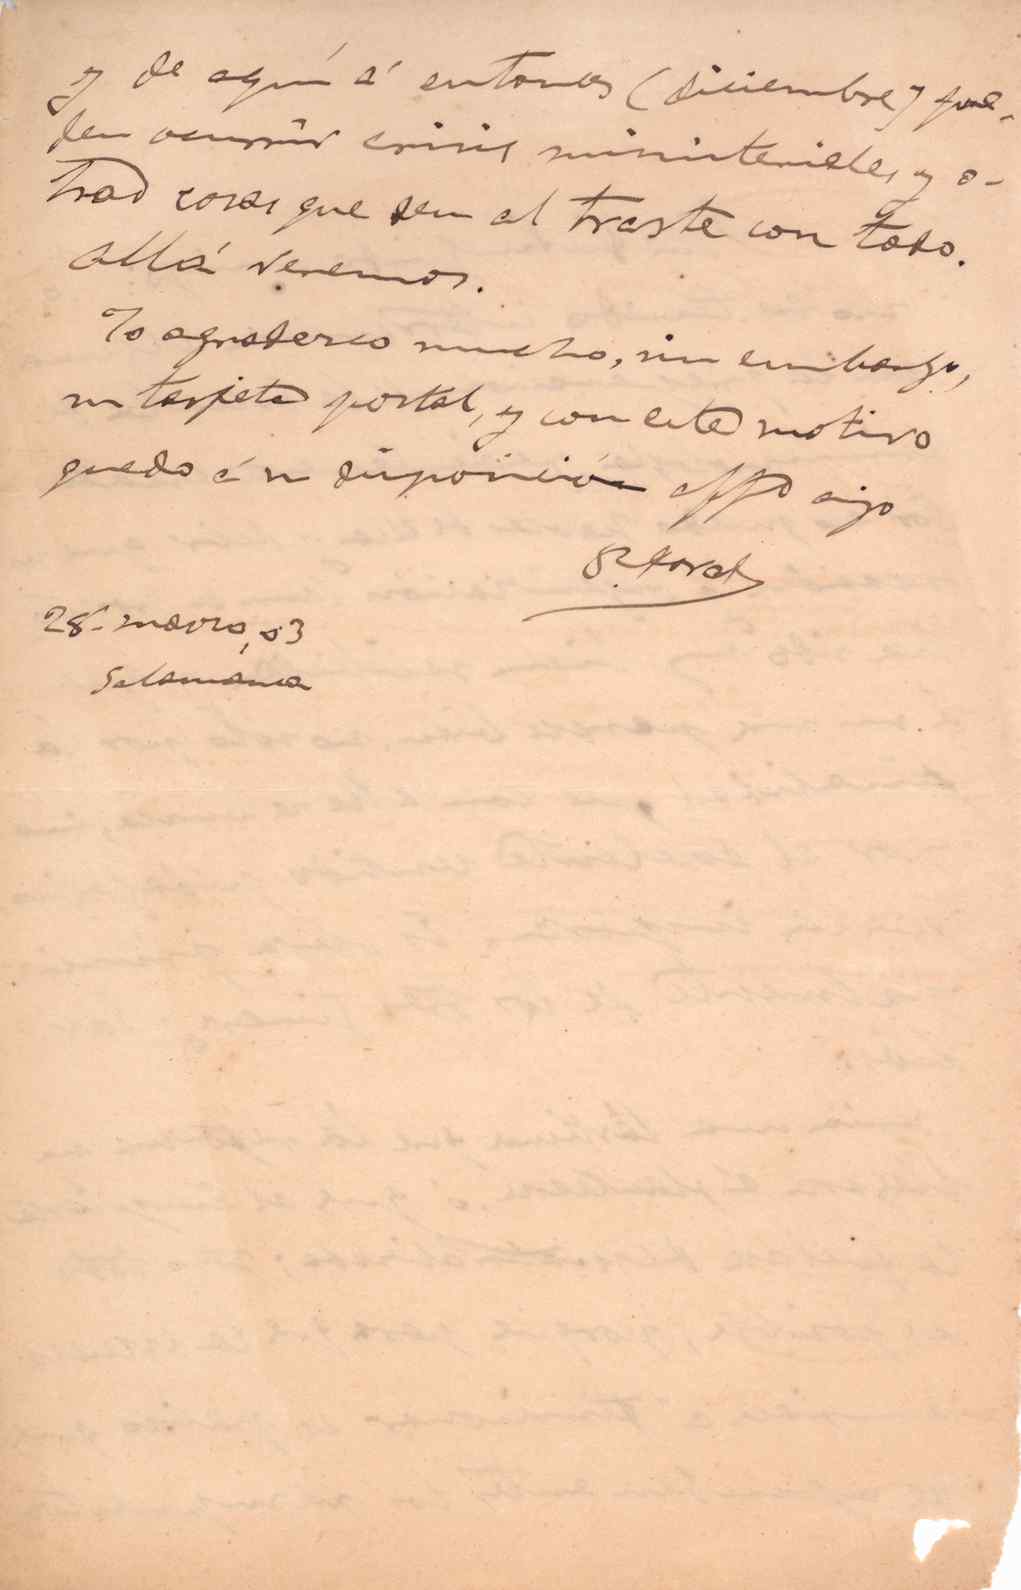 y de aquí á entonces (diciembre) pue-
den ocurrir crisis ministeriales, y o-
tras cosas que den al traste con todo.
allá veremos.
Yo agradezco mucho, sin embargo,
su tarjeta postal, y con este motivo
quedo á su disposición affo amigo
28- marzo, 03
Salamanca